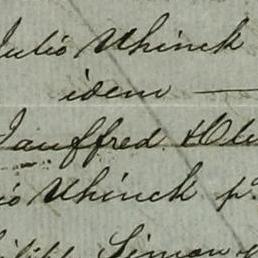 Julio Uhinck
idem
Jauffred &
Uhinck p.
Simon